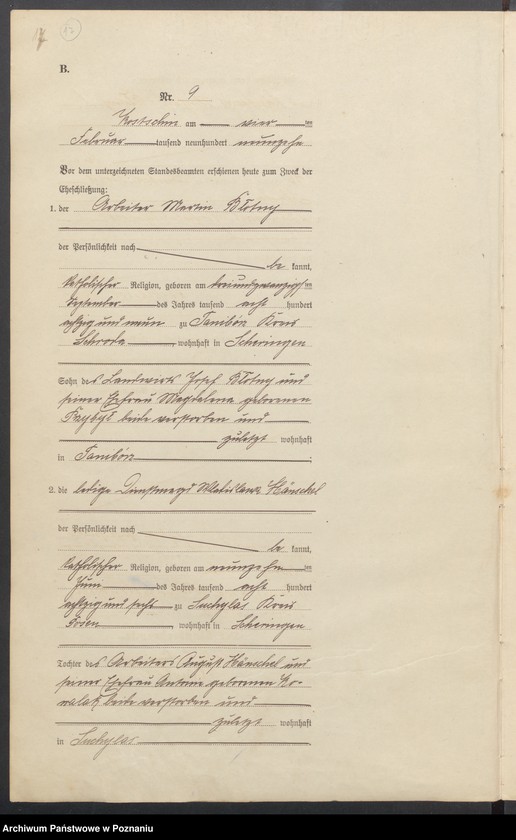 17
B.
Nr. 9
Kostschin am vier ten
Februar tausend neunhundert neunzehn
Vor dem unterzeichneten Standesbeamten erschienen heute zum Zweck der
Eheschließung:
1. der Arbeiter Martin Kłotny
der Persönlichkeit nach
be kannt,
katholischer Religion, geboren am dreiundzwanzigs ten
September des Jahres tausend acht hundert
achtzig und neun zu Kreis
Schroda, wohnhaft in Scheringen
Sohn des Landwirts Josef Kłotny und
seiner Ehefrau Magdalena geborenen
beide verstorben und
zuletzt wohnhaft
in
2. die ledige Dienstmagd Hänschel
der Persönlichkeit nach
be kannt,
katholischer Religion, geboren am neunzehn ten
Juni des Jahres tausend acht hundert
achtzig und sechs zu Suchylas Kreis
Posen, wohnhaft in Scheringen
Tochter des Arbeiters August Hänschel und
seiner Ehefrau Antonie geborenen Ko-
walak beide verstorben und
zuletzt wohnhaft
in Suchylas
Archiwum Państwowe w Poznaniu